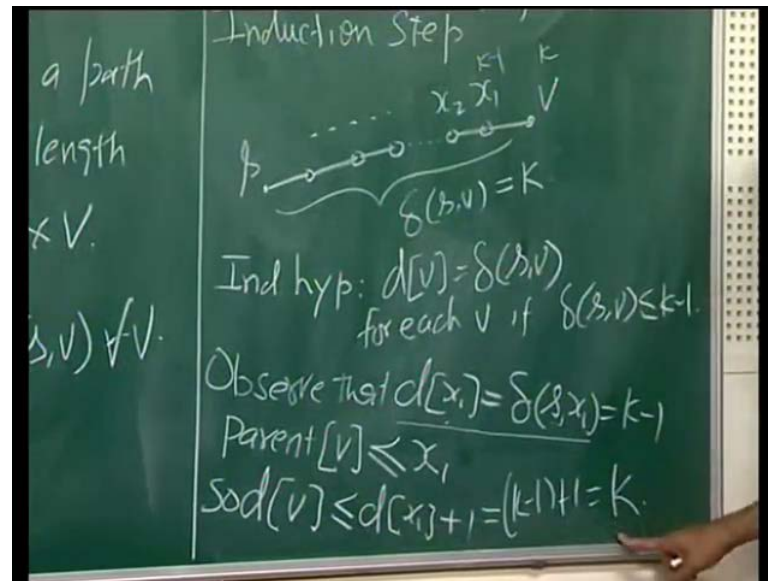 a path
length
x V.
s,v) ∀ V.
Induction Step
k-1 k
x₂ x₁ V
s
δ(s,v) = K
Ind hyp: d[v] = δ(s,v)
for each v if δ(s,v) ≤ k-1.
Observe that d[x₁] = δ(s,x₁) = k-1
Parent[v] ≤ x₁
so d[v] ≤ d[x₁] + 1 = (k-1)+1 = K.